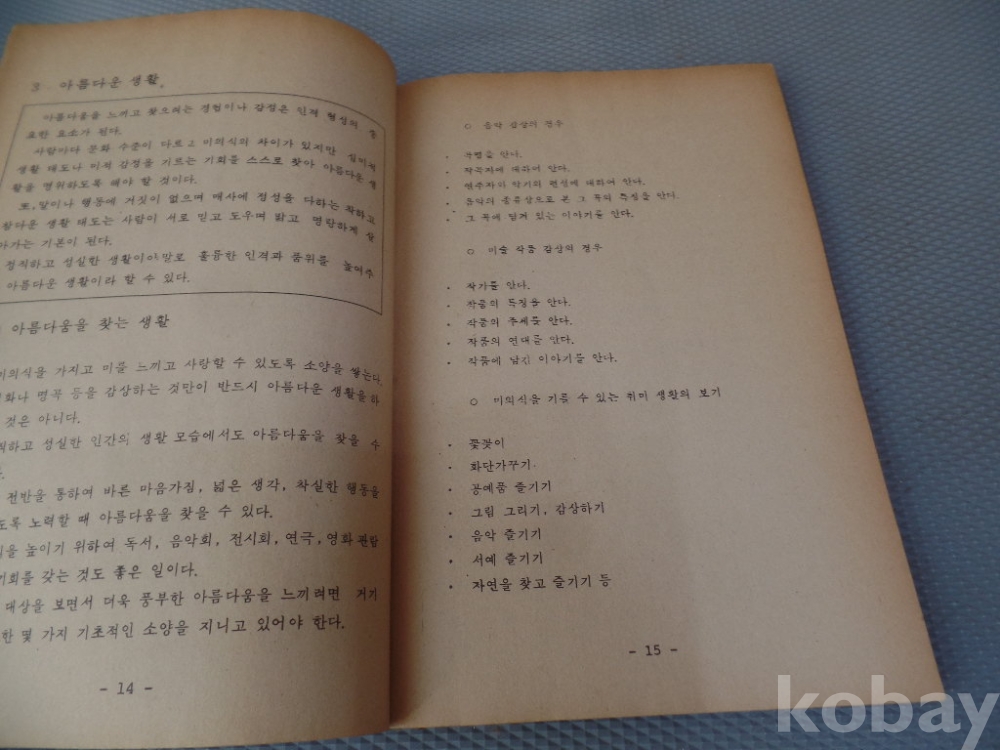 3 아름다운 생활.
아름다움을 느끼고 찾으려는 경험이나 감정은 인격 형성의 중
요한 요소가 된다.
사람마다 문화 수준이 다르고 미의식의 차이가 있지만 심미적
생활 태도나 미적 감정을 기르는 기회를 스스로 찾아 아름다운 생
활을 영위하도록 해야 할 것이다.
또, 말이나 행동에 거짓이 없으며 매사에 정성을 다하는 착하고
참다운 생활 태도는 사람이 서로 믿고 도우며 밝고 명랑하게 살
아가는 기본이 된다.
정직하고 성실한 생활이야말로 훌륭한 인격과 품위를 높여주
아름다운 생활이라 할 수 있다.
아름다움을 찾는 생활
미의식을 가지고 미를 느끼고 사랑할 수 있도록 소양을 쌓는다.
화나 명곡 등을 감상하는 것만이 반드시 아름다운 생활을 하
것은 아니다.
직하고 성실한 인간의 생활 모습에서도 아름다움을 찾을 수
다.
전반을 통하여 바른 마음가짐, 넓은 생각, 착실한 행동을
도록 노력할 때 아름다움을 찾을 수 있다.
을 높이기 위하여 독서, 음악회, 전시회, 연극, 영화 관람
기회를 갖는 것도 좋은 일이다.
대상을 보면서 더욱 풍부한 아름다움을 느끼려면 거기
한 몇 가지 기초적인 소양을 지니고 있어야 한다.
- 14 -
○ 음악 감상의 경우
· 곡명을 안다.
· 작곡자에 대하여 안다.
· 연주자와 악기의 편성에 대하여 안다.
· 음악의 종류상으로 본 그 곡의 특징을 안다.
· 그 곡에 담겨 있는 이야기를 안다.
○ 미술 작품 감상의 경우
· 작가를 안다.
· 작품의 특징을 안다.
· 작품의 주제를 안다.
· 작품의 연대를 안다.
· 작품에 남긴 이야기를 안다.
○ 미의식을 기를 수 있는 취미 생활의 보기
· 꽃꽂이
· 화단가꾸기
· 공예품 즐기기
· 그림 그리기, 감상하기
· 음악 즐기기
· 서예 즐기기
· 자연을 찾고 즐기기 등
- 15 -
kobay